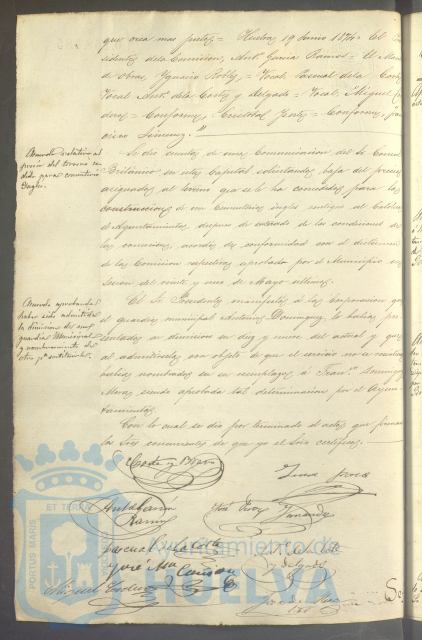 que crea mas justo = Huelva 19 Junio 1874 = El
sidente de la Comision, Antº Garcia Ramos = El
de obras, Ignacio Robles = Vocal, Pascual de la Corte
Vocal Antº de la Corte y Delgado = Vocal, Miguel
= Conforme, Cristobal = Conforme,
Jimenez."
Acuerdo relativo al
precio del terreno ce-
dido para cementerio
Ingles.
Se dio cuenta de una Comunicacion del Sr Consul
Britanico en esta Capital solicitando baja del precio
asignado al terreno que se le ha concedido para la
construccion de un Cementerio ingles
Ayuntamiento, despues de enterado de las condiciones de
la concesion, acordó de conformidad con el dictamen
de la Comision respectiva aprobado por el Municipio en
sesion del veinte y uno de Mayo ultimo.
Acuerdo aprobando
haber sido admitida
la dimision de un
guardia Municipal
y nombramiento de
otro pª sustituirle.
El Sr Presidente manifestó á la Corporacion que
el guardia municipal Antonio Dominguez le habia pre-
sentado su dimision en diez y nueve del actual y que
al admitirsela con objeto de que el servicio no se
habia nombrado en su reemplazo á Franco Dominguez
Mora siendo aprobada tal determinacion por el Ayun-
tamiento.
Con lo cual se dio por terminado el acto que firman
los Sres concurrentes de que yo el Srio certifico.
Corte y
Garcia
Ramos
José
Pascual de la Corte
José Mª
A. de la Corte
y Delgado
Miguel
ET TERRAE
PORTUS MARIS
Ayuntamiento de
HUELVA